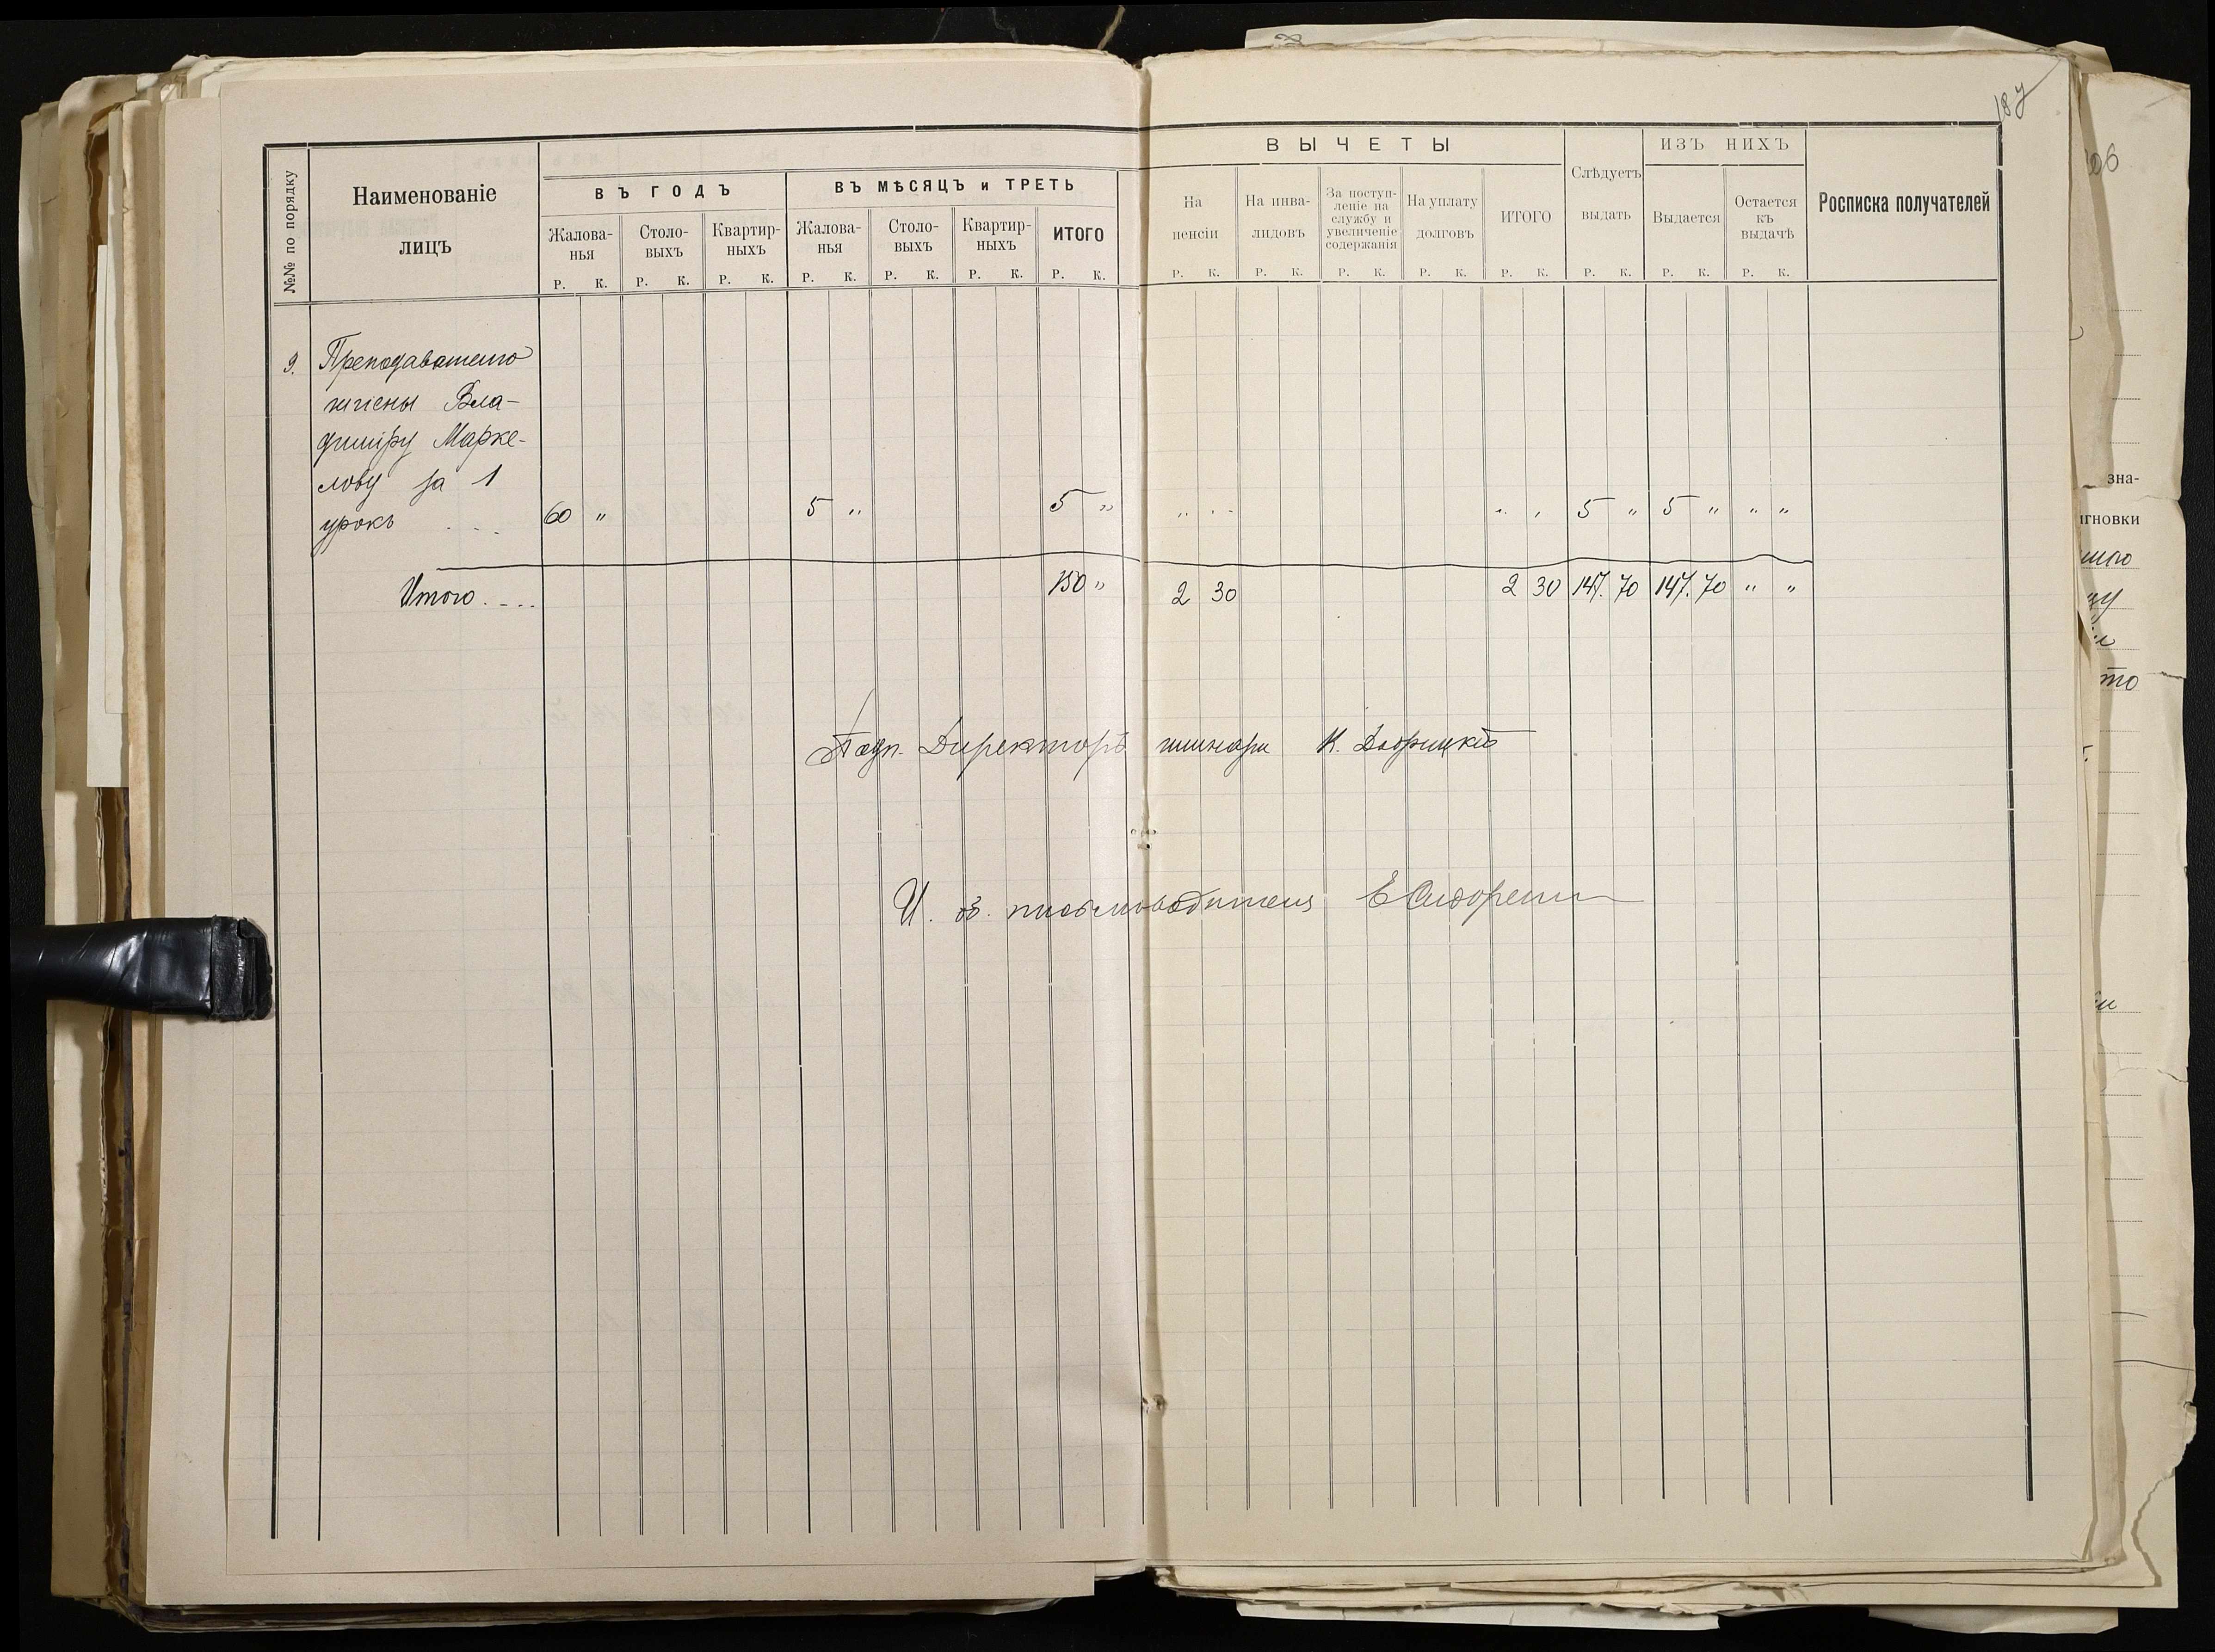 187
№№ по порядку
Наименованіе
ЛИЦЪ
ВЪ ГОДЪ
Жалова-
нья
Р. К.
Столо-
выхъ
Р. К.
Квартир-
ныхъ
Р. К.
ВЪ МѢСЯЦЪ и ТРЕТЬ
Жалова-
нья
Р. К.
Столо-
выхъ
Р. К.
Квартир-
ныхъ
Р. К.
ИТОГО
Р. К.
ВЫЧЕТЫ
На
пенсіи
Р. К.
На инва-
лидовъ
Р. К.
За поступ-
леніе на
службу и
увеличеніе
содержанія
Р. К.
На уплату
долговъ
Р. К.
ИТОГО
Р. К.
Слѣдуетъ
выдать
Р. К.
ИЗЪ НИХЪ
Выдается
Р. К.
Остается
къ
выдачѣ
Р. К.
Росписка получателей
9. Преподавателю
гигіены Вла-
диміру Марке-
лову за 1
урокъ . . . 60 " 5 " 5 " " " " " 5 " 5 " " "
Итого. - . . 150 " 2 30 2 30 147. 70 147. 70 " "
Подп. Директоръ К.
И. об. письмоводителя
106
зна-
игновки